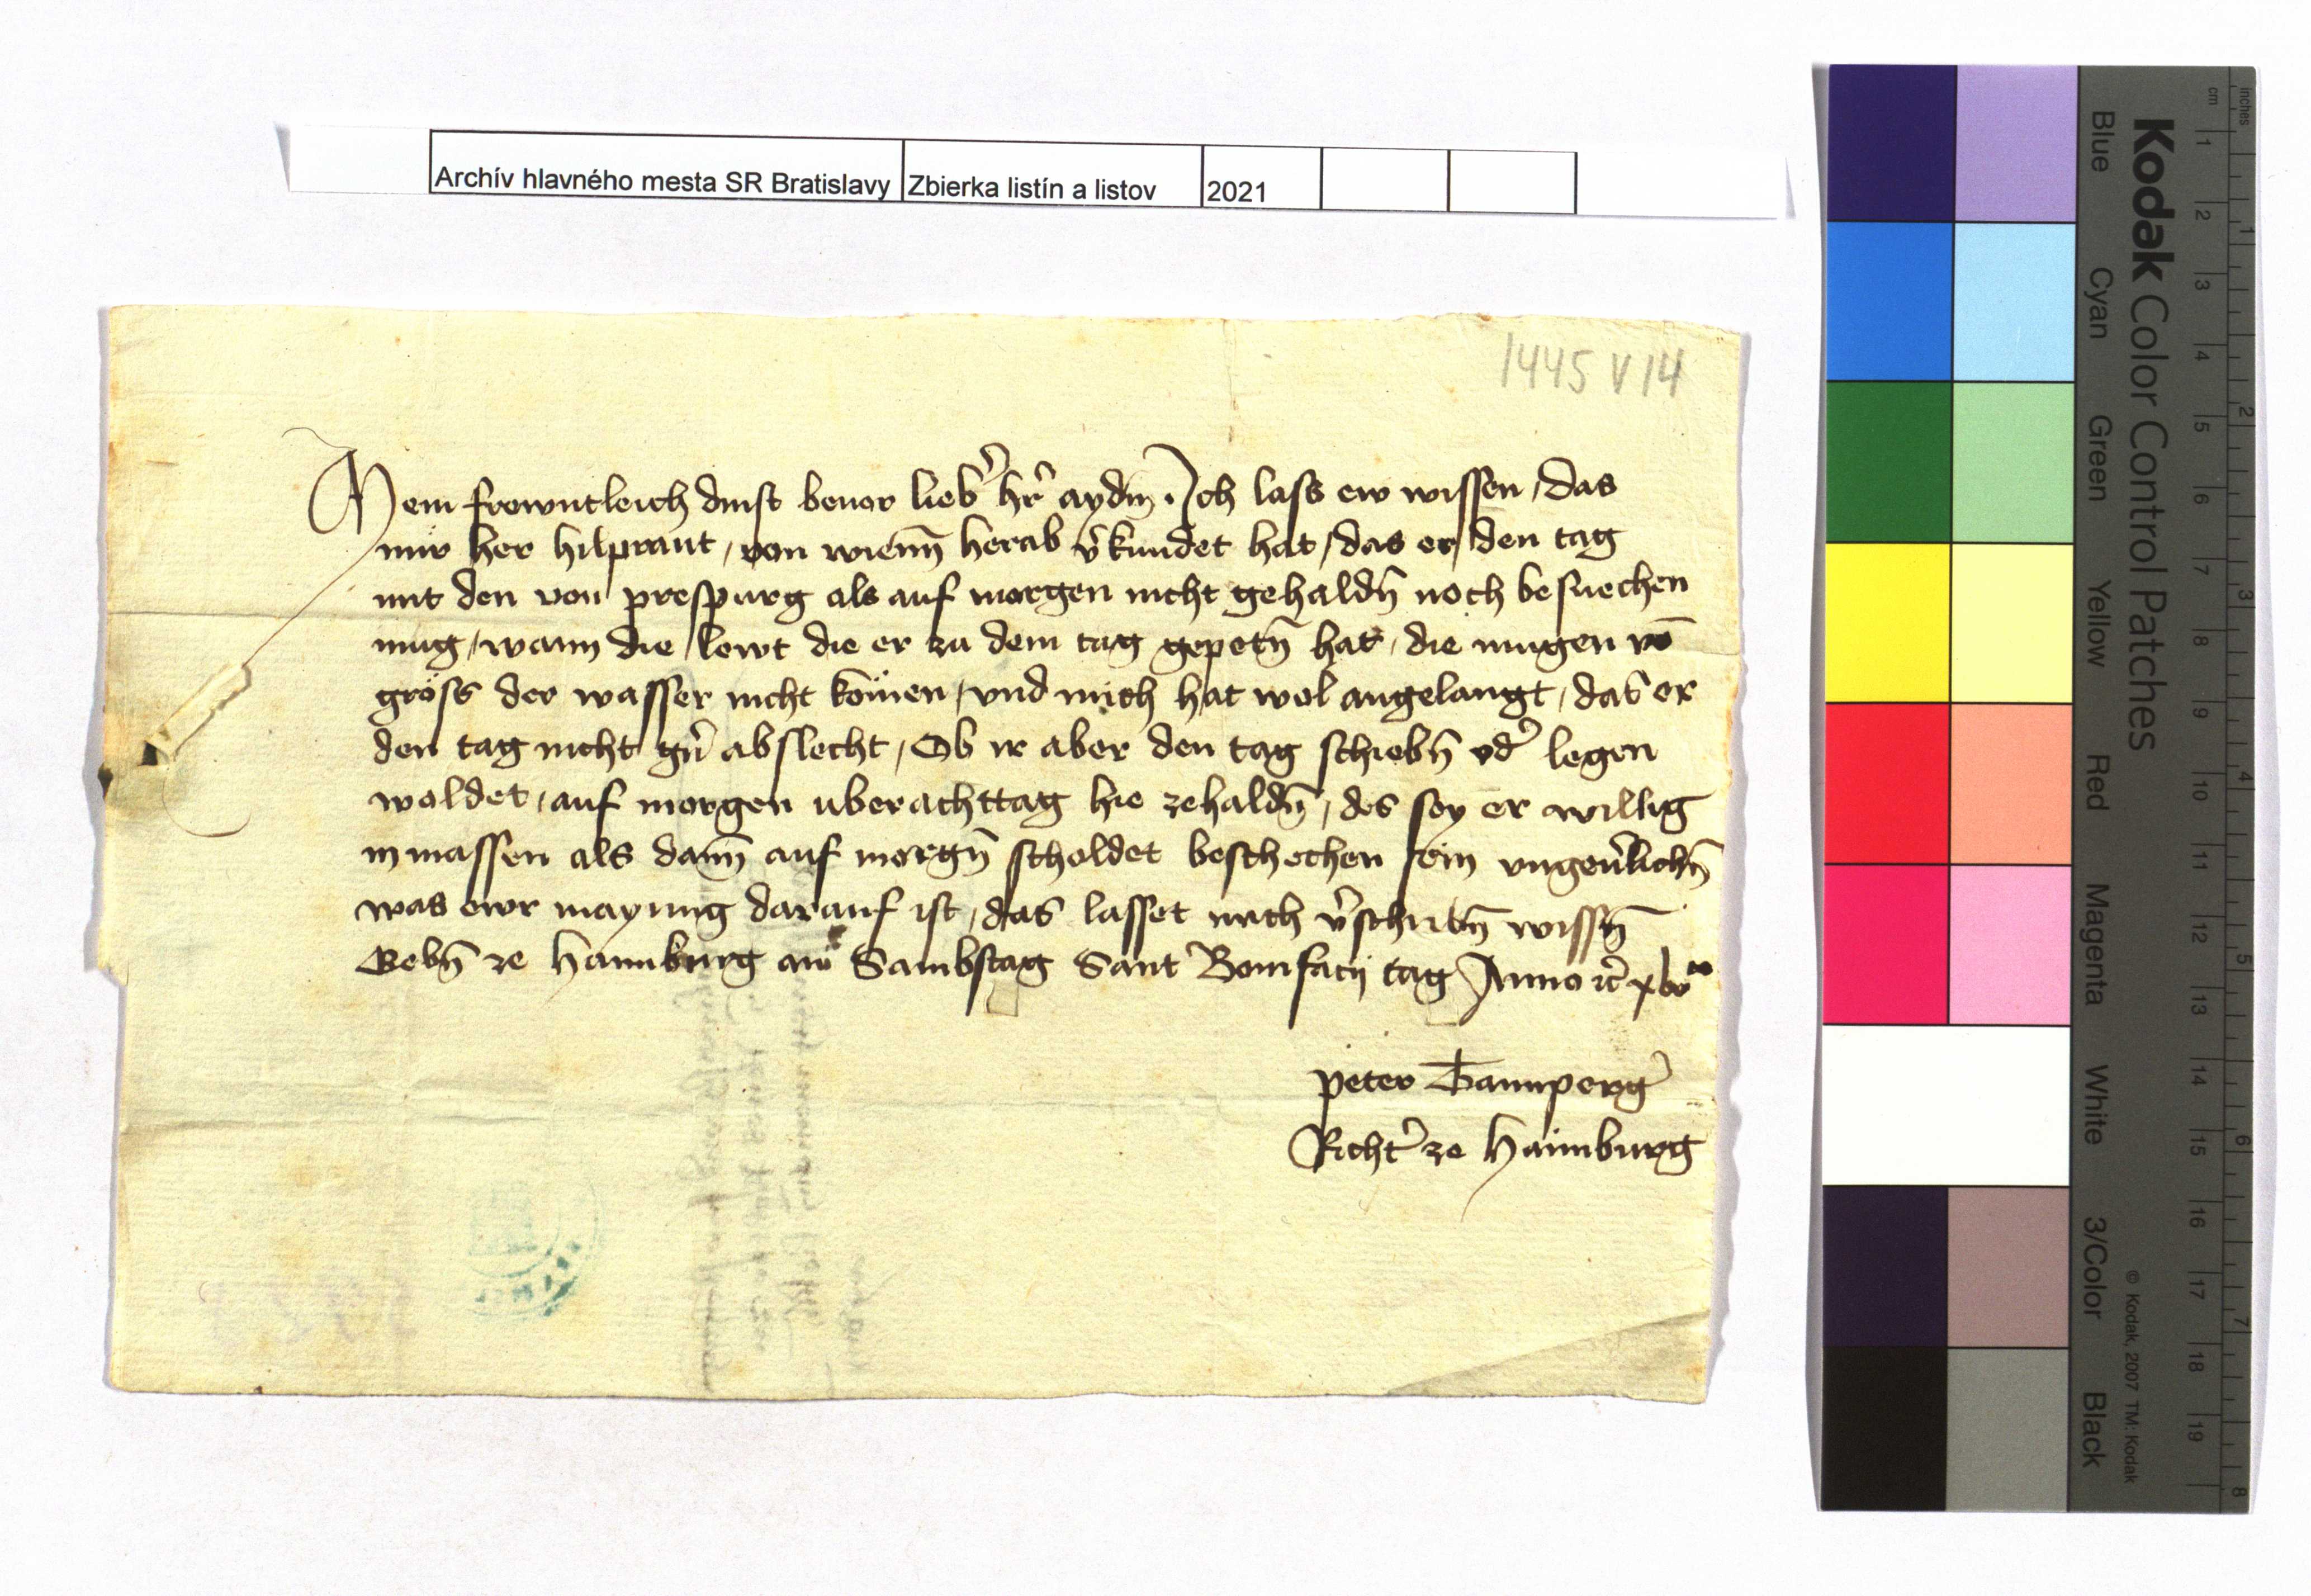 Archív hlavného mesta SR Bratislavy Zbierka listín a listov 2021
1445 V 14
Mein frewntleich dinst beuor lieb' h'r aydm. Ich lass ew wissen, das
mir her hilprant, von wienn herab v'kundet hat, das er den tag
mit den von prespurg als auf morgen nicht gehaldn noch besuechen
mug, wann die lewt die er zu dem tag gepetn hat, die mugen vō
gröss der wasser nicht komen, vnd mich hat wol angelangt, das er
den tag nicht g'n abslecht, Ob ir aber den tag schiebn od' legen
woldet, auf morgen uber achttag hie ze haldn, des sey er willig
in massen als dann auf morgn scholdet beschechen sein vngeu'lichn
was ewr maynung darauf ist, das lasset mich v'schribn wissn
Gebn ze Haimburg am Sambstag Sant Bonifacij tag Anno 2c xlvto
peter Tannperg'
Richt' ze Haimburg
Kodak Color Control Patches
Blue Cyan Green Yellow Red Magenta White 3/Color Black
© Kodak, 2007 TM: Kodak
cm 1 2 3 4 5 6 7 8 9 10 11 12 13 14 15 16 17 18 19
inches 1 2 3 4 5 6 7 8